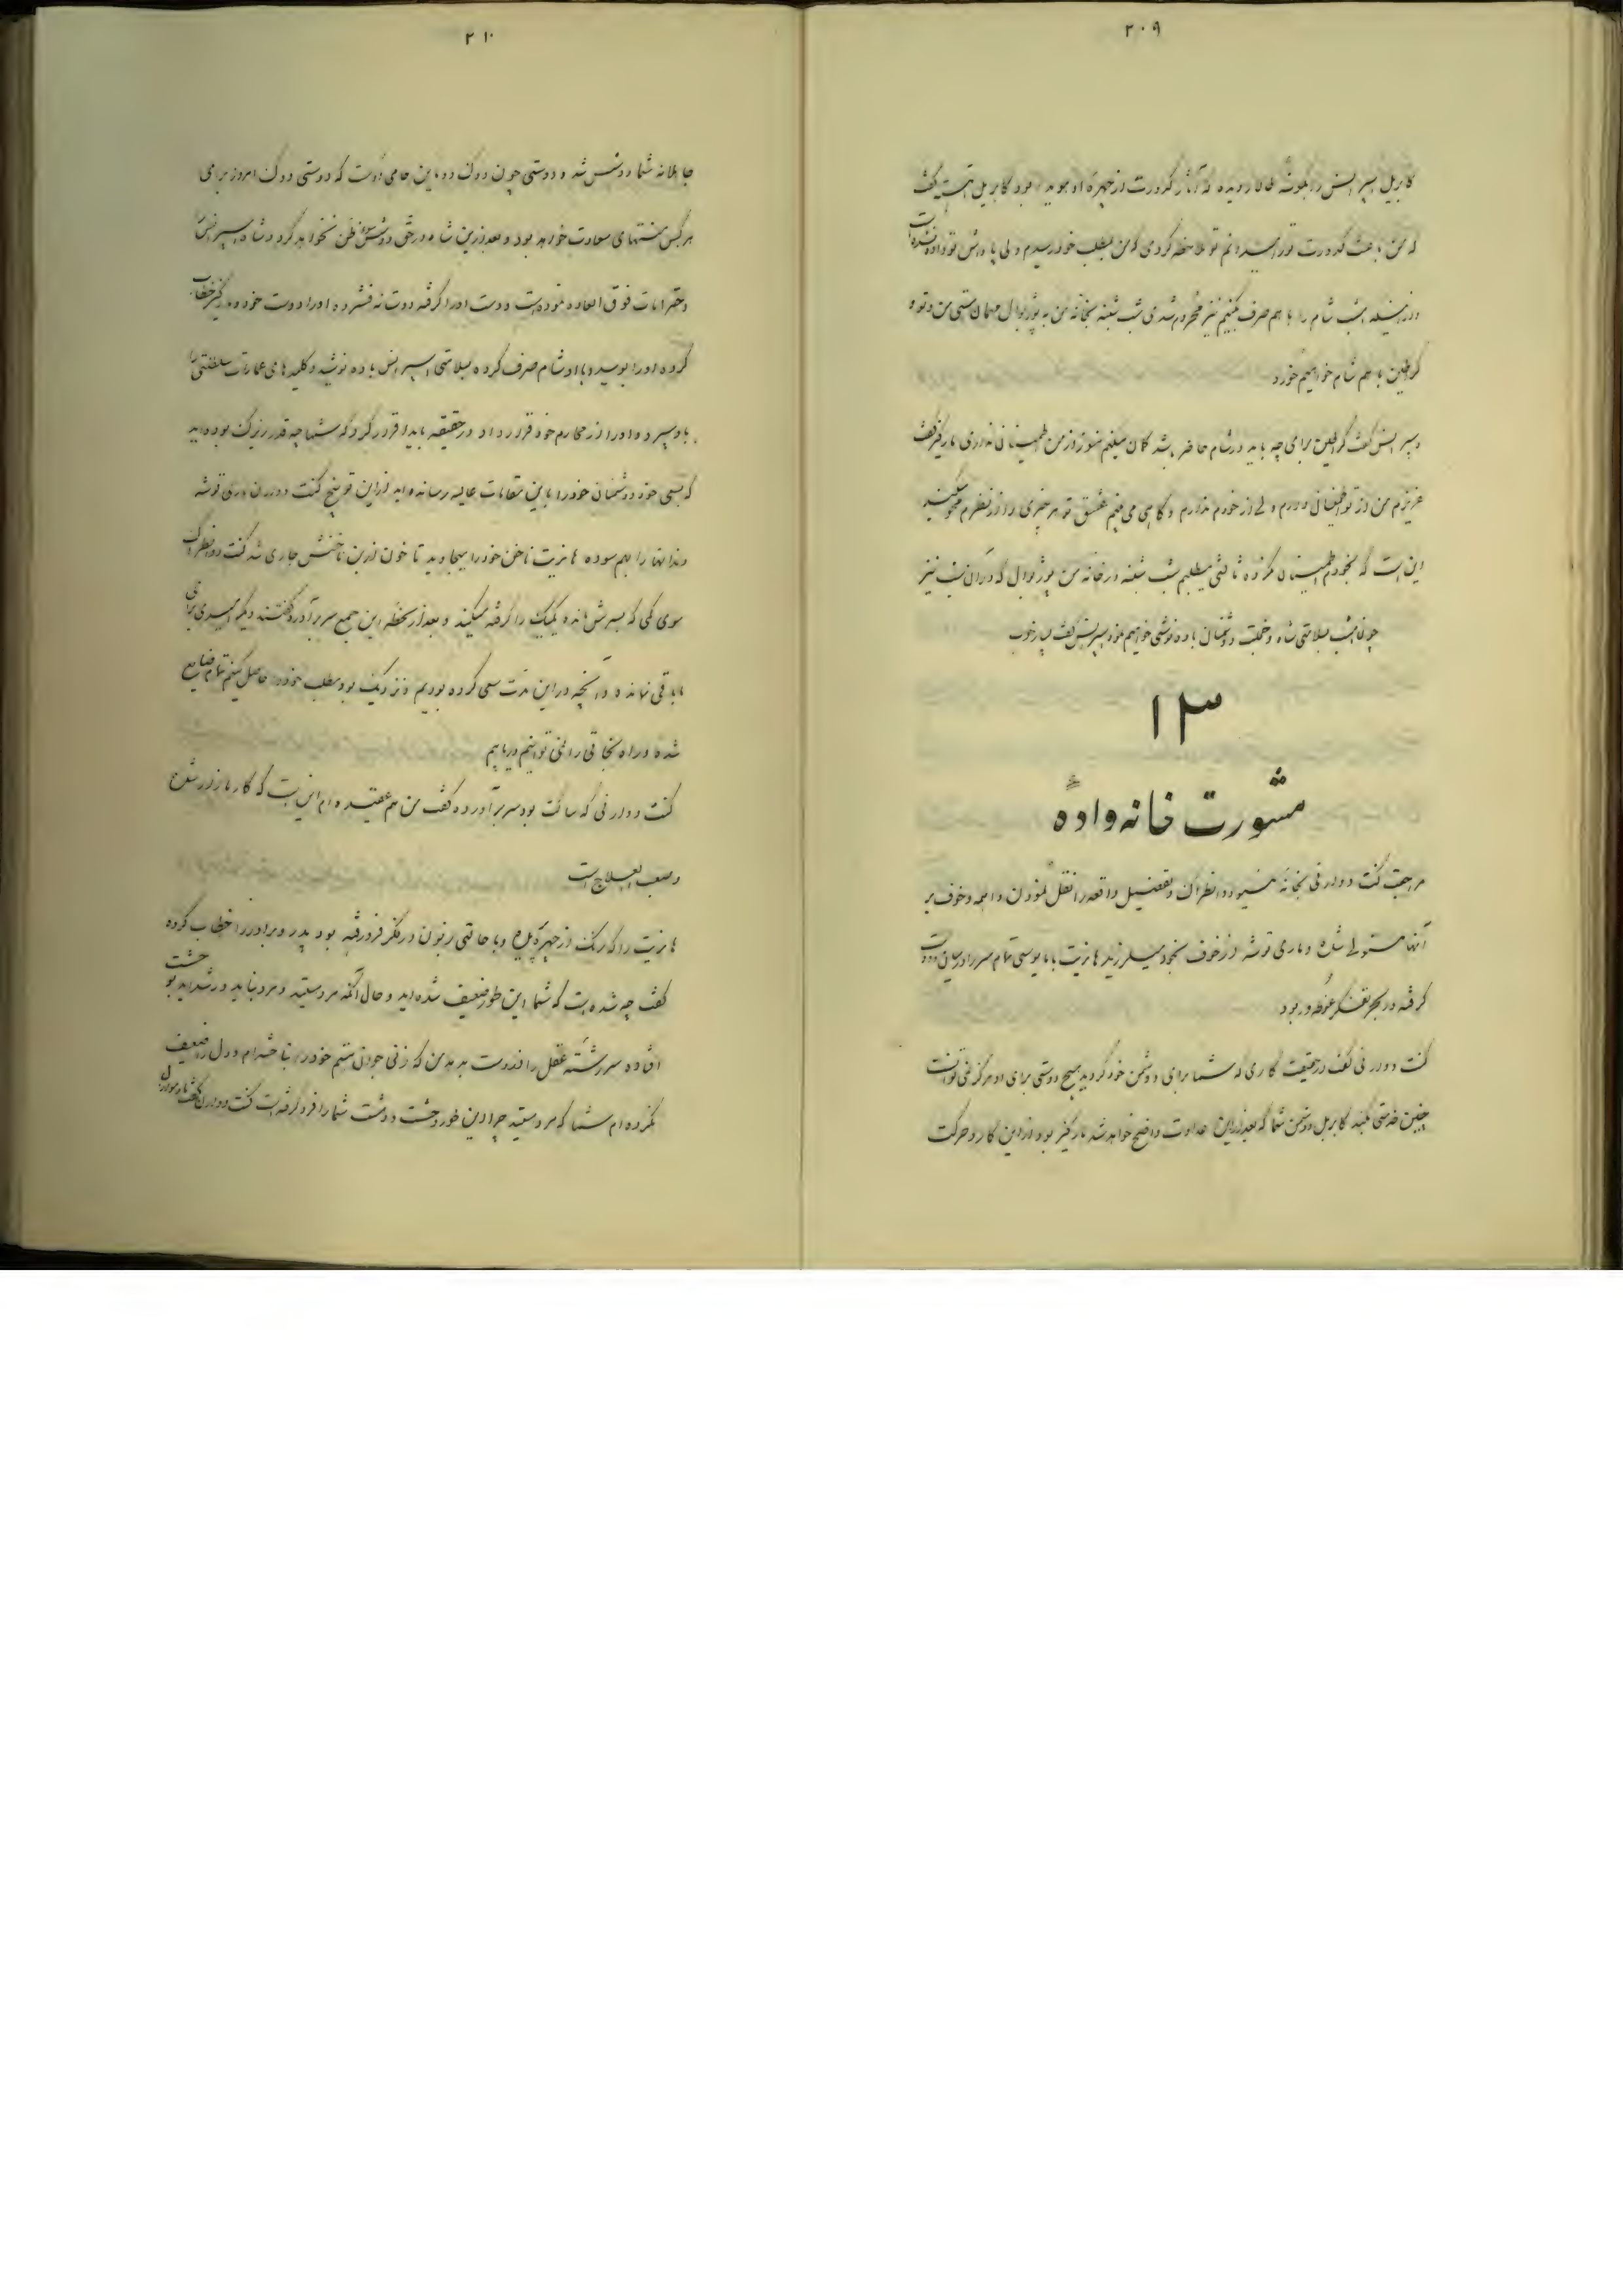 ۲۰۹
که من باعث کدورت تو را میدانم تو ملاحظه کردی که من بمطلب خود رسیدم ولی پاداش تو داده نشده است
و از اینکه امشب شام را با هم صرف نکنیم نیز محروم شدی شب شنبه بخانه من به پورژوال مهمان هستی من و تو و
کرفلین با هم شام خواهیم خورد
اسپرانس گفت کرفلین برای چه باید در شام حاضر باشد گمان میکنم هنوز از من اطمینانی نداری مارکیز گفت
عزیزم من از تو اطمینان دارم ولی از خودم ندارم و گاهی می بینم عشق تو هر چیزی را از نظرم محو میکند
این است که بخود اطمینان نکرده ثالثی میطلبم شب شنبه در خانه من پورژوال که در آن شب نیز
چون امشب بسلامتی شاه و خجلت دشمنان باده نوشی خواهیم نمود اسپرانس گفت بسیار خوب
۱۳
مشورت خانه واده
مراجعت کنت دودارنی بخانه مسیو دانطراک و تفضیل واقعه را نقل نمودن واهمه و خوف بر
آنها مستولی شده و ماری توشه از خوف بخود میلرزید هانریت با مایوسی تمام سر را در میان دو دست
گرفته در بحر تفکر غوطه ور بود
کنت دودارنی گفت در حقیقت کاری که شما برای دشمن خود کردید هیچ دوستی برای او هرگز نمی توانست
چنین خدمتی بکند کابریل دشمن شما که بعد از این عداوت واضح خواهد شد مارکیز بود از این کار و حرکت
۲۱۰
جاهلانه شما دوشس شد و دوستی چون دوک دو ماین حامی اوست که دوستی دوک امروز برای
هر کس منتهای سعادت خواهد بود و بعد از این شاه در حق دوشس سوء ظن نخواهد کرد و شاه اسپرانس را
احترامات فوق العاده نموده است و دست او را گرفته دوستانه فشرده او را دوست خود و مارکیز خطاب
کرده او را بوسیده با او شام صرف کرده بسلامتی اسپرانس باده نوشید و کلید های عمارات سلطنتی را
باو سپرده او را از محارم خود قرار داد در حقیقه باید اقرار کرد که شما چه قدر زیرک بوده اید
که بسعی خود دشمنان خود را باین مقامات عالیه رسانده اید از این توبیخ کنت دودارن ماری توشه
دندانها را بهم سوده هانریت ناخن خود را میجاوید تا خون از بن ناخنش جاری شد کنت دانطراک
موی کمی که بسرش مانده یکیک را گرفته میکند و بعد از لحظه این جمع سر بر آورده گفتند دیگر امیدی برای
ما باقی نمانده و آنچه در این مدت سعی کرده بودیم و نزدیک بود مطلب خود را حاصل کنیم تمام ضایع
شده و راه نجاتی را نمی توانیم دریابیم
کنت دودارنی که ساکت بود سر بر آورده گفت من هم عقیده ام این است که کار ما زدر علاج
و صعب العلاج است
هانریت را که رنگ از چهره پریده و با حالتی زبون در فکر فرو رفته بود پدر و برادر را خطاب کرده
گفت چه شده است که شما این طور ضعیف شده اید و حال آنکه مرد هستید و مرد نباید در شداید بوحشت
افتاده سر رشته عقل را از دست بدهد من که زنی جوان هستم خود را نباخته ام و دل را ضعیف
نکرده ام شما که مرد هستید چرا این طور وحشت و دهشت شما را فرو گرفته است کنت دودارن گفت